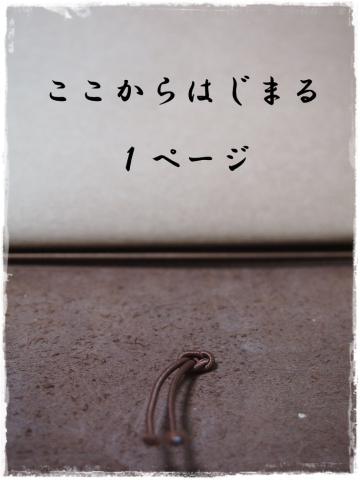 ここからはじまる
1ページ